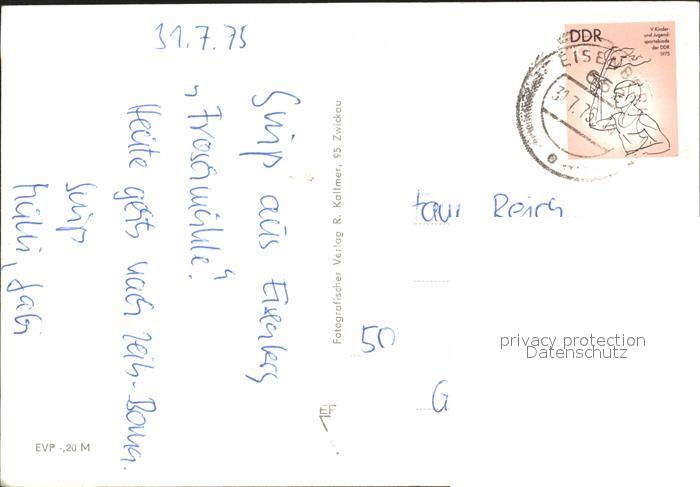 31.7.75
Gruß aus Eisenberg
„Froschmühle".
Heute gehts nach Zeitz-Borna.
Gruß
Gabi
Fotografischer Verlag R. Kallmer, 95 Zwickau
EVP -,20 M
DDR
V. Kinder-
und Jugend-
spartakiade
der DDR
1975
EISENBERG
31.7.75
Reich
50
G
privacy protection
Datenschutz